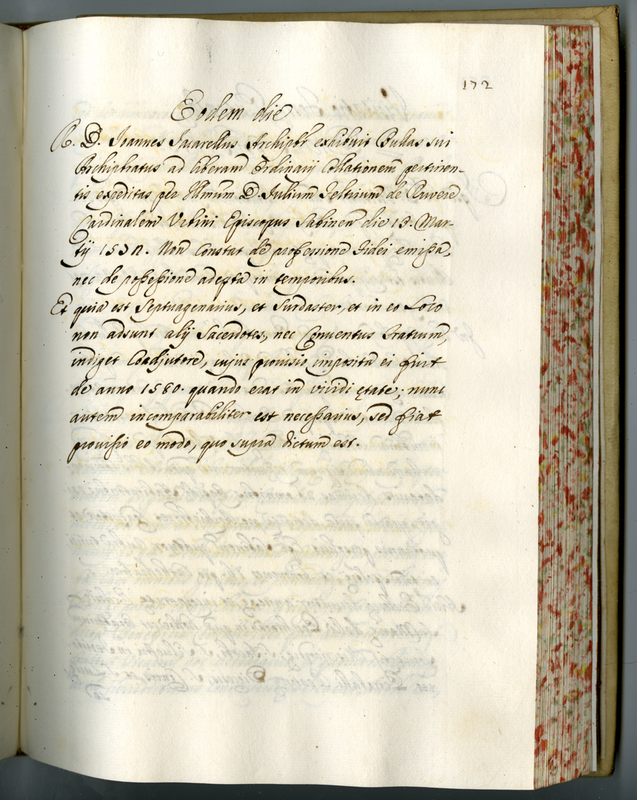 172
Eodem die
R. D. Joannes Favarellus Archipbr exhibuit Bullas sui
Archipbratus ad liberam Ordinarij Collationem pertinen-
tis expeditas per Illmum D. Iulium Feltrium de Ruvere
Cardinalem Urbini Episcopus Sabinen die 13. Mar-
tij 1571. Non Constat de professione Fidei emissa,
nec de possessione adepta in temporibus.
Et quia est septuagenarius, et surdaster, et in eo Loco
non adsunt alij Sacerdotes, nec Conventus Fratrum,
indiget Coadjutore, cujus provisio imposita ei fuit
de anno 1580. quando erat in viridi ętate; nunc
autem incomparabiliter est necessarius, sed fiat
provisio eo modo, quo supra dictum est.